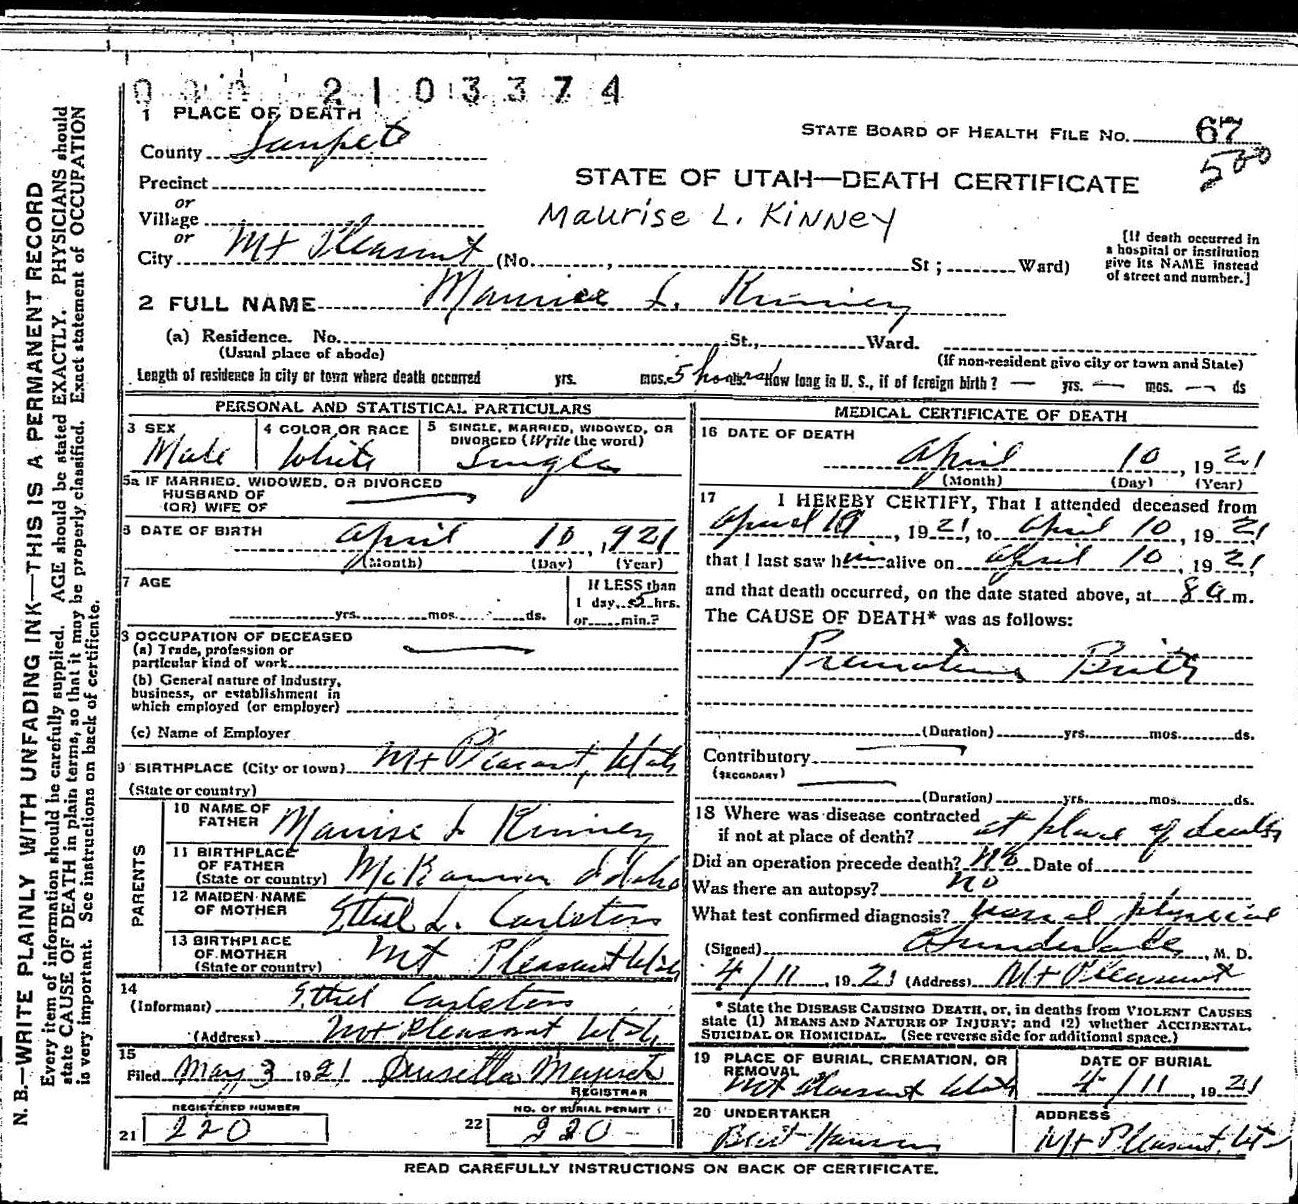 2103374
1 PLACE OF DEATH
STATE BOARD OF HEALTH FILE No. 67
500
County Sanpete
Precinct
or
Village
or
City Mt Pleasant (No. , St ; Ward)
STATE OF UTAH—DEATH CERTIFICATE
Maurise L. Kinney
[If death occurred in
a hospital or institution
give its NAME instead
of street and number.]
2 FULL NAME Maurice L. Kinney
(a) Residence. No. St., Ward.
(Usual place of abode)
(If non-resident give city or town and State)
Length of residence in city or town where death occurred yrs. mos. 5 hours How long in U. S., if of foreign birth? — yrs. — mos. — ds
PERSONAL AND STATISTICAL PARTICULARS
3 SEX Male
4 COLOR OR RACE White
5 SINGLE, MARRIED, WIDOWED, OR
DIVORCED (Write the word)
Single
5a IF MARRIED, WIDOWED, OR DIVORCED
HUSBAND OF
(OR) WIFE OF
6 DATE OF BIRTH April 10, 1921
(Month) (Day) (Year)
7 AGE
yrs. mos. ds.
If LESS than
1 day, 5 hrs.
or min.?
8 OCCUPATION OF DECEASED
(a) Trade, profession or
particular kind of work
(b) General nature of Industry,
business, or establishment in
which employed (or employer)
(c) Name of Employer
9 BIRTHPLACE (City or town) Mt Pleasant, Utah
(State or country)
PARENTS
10 NAME OF
FATHER Maurise L Kinney
11 BIRTHPLACE
OF FATHER
(State or country) Idaho
12 MAIDEN NAME
OF MOTHER Ethel L. Carlston
13 BIRTHPLACE
OF MOTHER
(State or country) Mt Pleasant Utah
14
(Informant) Ethel Carlston
(Address) Mt Pleasant Utah
15
Filed May 3 1921
REGISTRAR
REGISTERED NUMBER
21 220
NO. OF BURIAL PERMIT
22 220
MEDICAL CERTIFICATE OF DEATH
16 DATE OF DEATH
April 10, 1921
(Month) (Day) (Year)
17 I HEREBY CERTIFY, That I attended deceased from
April 10, 1921, to April 10, 1921
that I last saw him alive on April 10, 1921,
and that death occurred, on the date stated above, at 8 a m.
The CAUSE OF DEATH* was as follows:
Premature Birth
(Duration) yrs. mos. ds.
Contributory
(SECONDARY)
(Duration) yrs. mos. ds.
18 Where was disease contracted
if not at place of death? at place of death
Did an operation precede death? no Date of
Was there an autopsy? no
What test confirmed diagnosis? physical
(Signed) , M. D.
4/11, 1921 (Address) Mt Pleasant
* State the DISEASE CAUSING DEATH, or, in deaths from VIOLENT CAUSES
state (1) MEANS AND NATURE OF INJURY; and (2) whether ACCIDENTAL,
SUICIDAL OR HOMICIDAL. (See reverse side for additional space.)
19 PLACE OF BURIAL, CREMATION, OR
REMOVAL
Mt Pleasant Utah
DATE OF BURIAL
4/11, 1921
20 UNDERTAKER
Hansen
ADDRESS
Mt Pleasant, Ut
READ CAREFULLY INSTRUCTIONS ON BACK OF CERTIFICATE.
N. B.—WRITE PLAINLY WITH UNFADING INK—THIS IS A PERMANENT RECORD
Every item of information should be carefully supplied. AGE should be stated EXACTLY. PHYSICIANS should
state CAUSE OF DEATH in plain terms, so that it may be properly classified. Exact statement of OCCUPATION
is very important. See instructions on back of certificate.